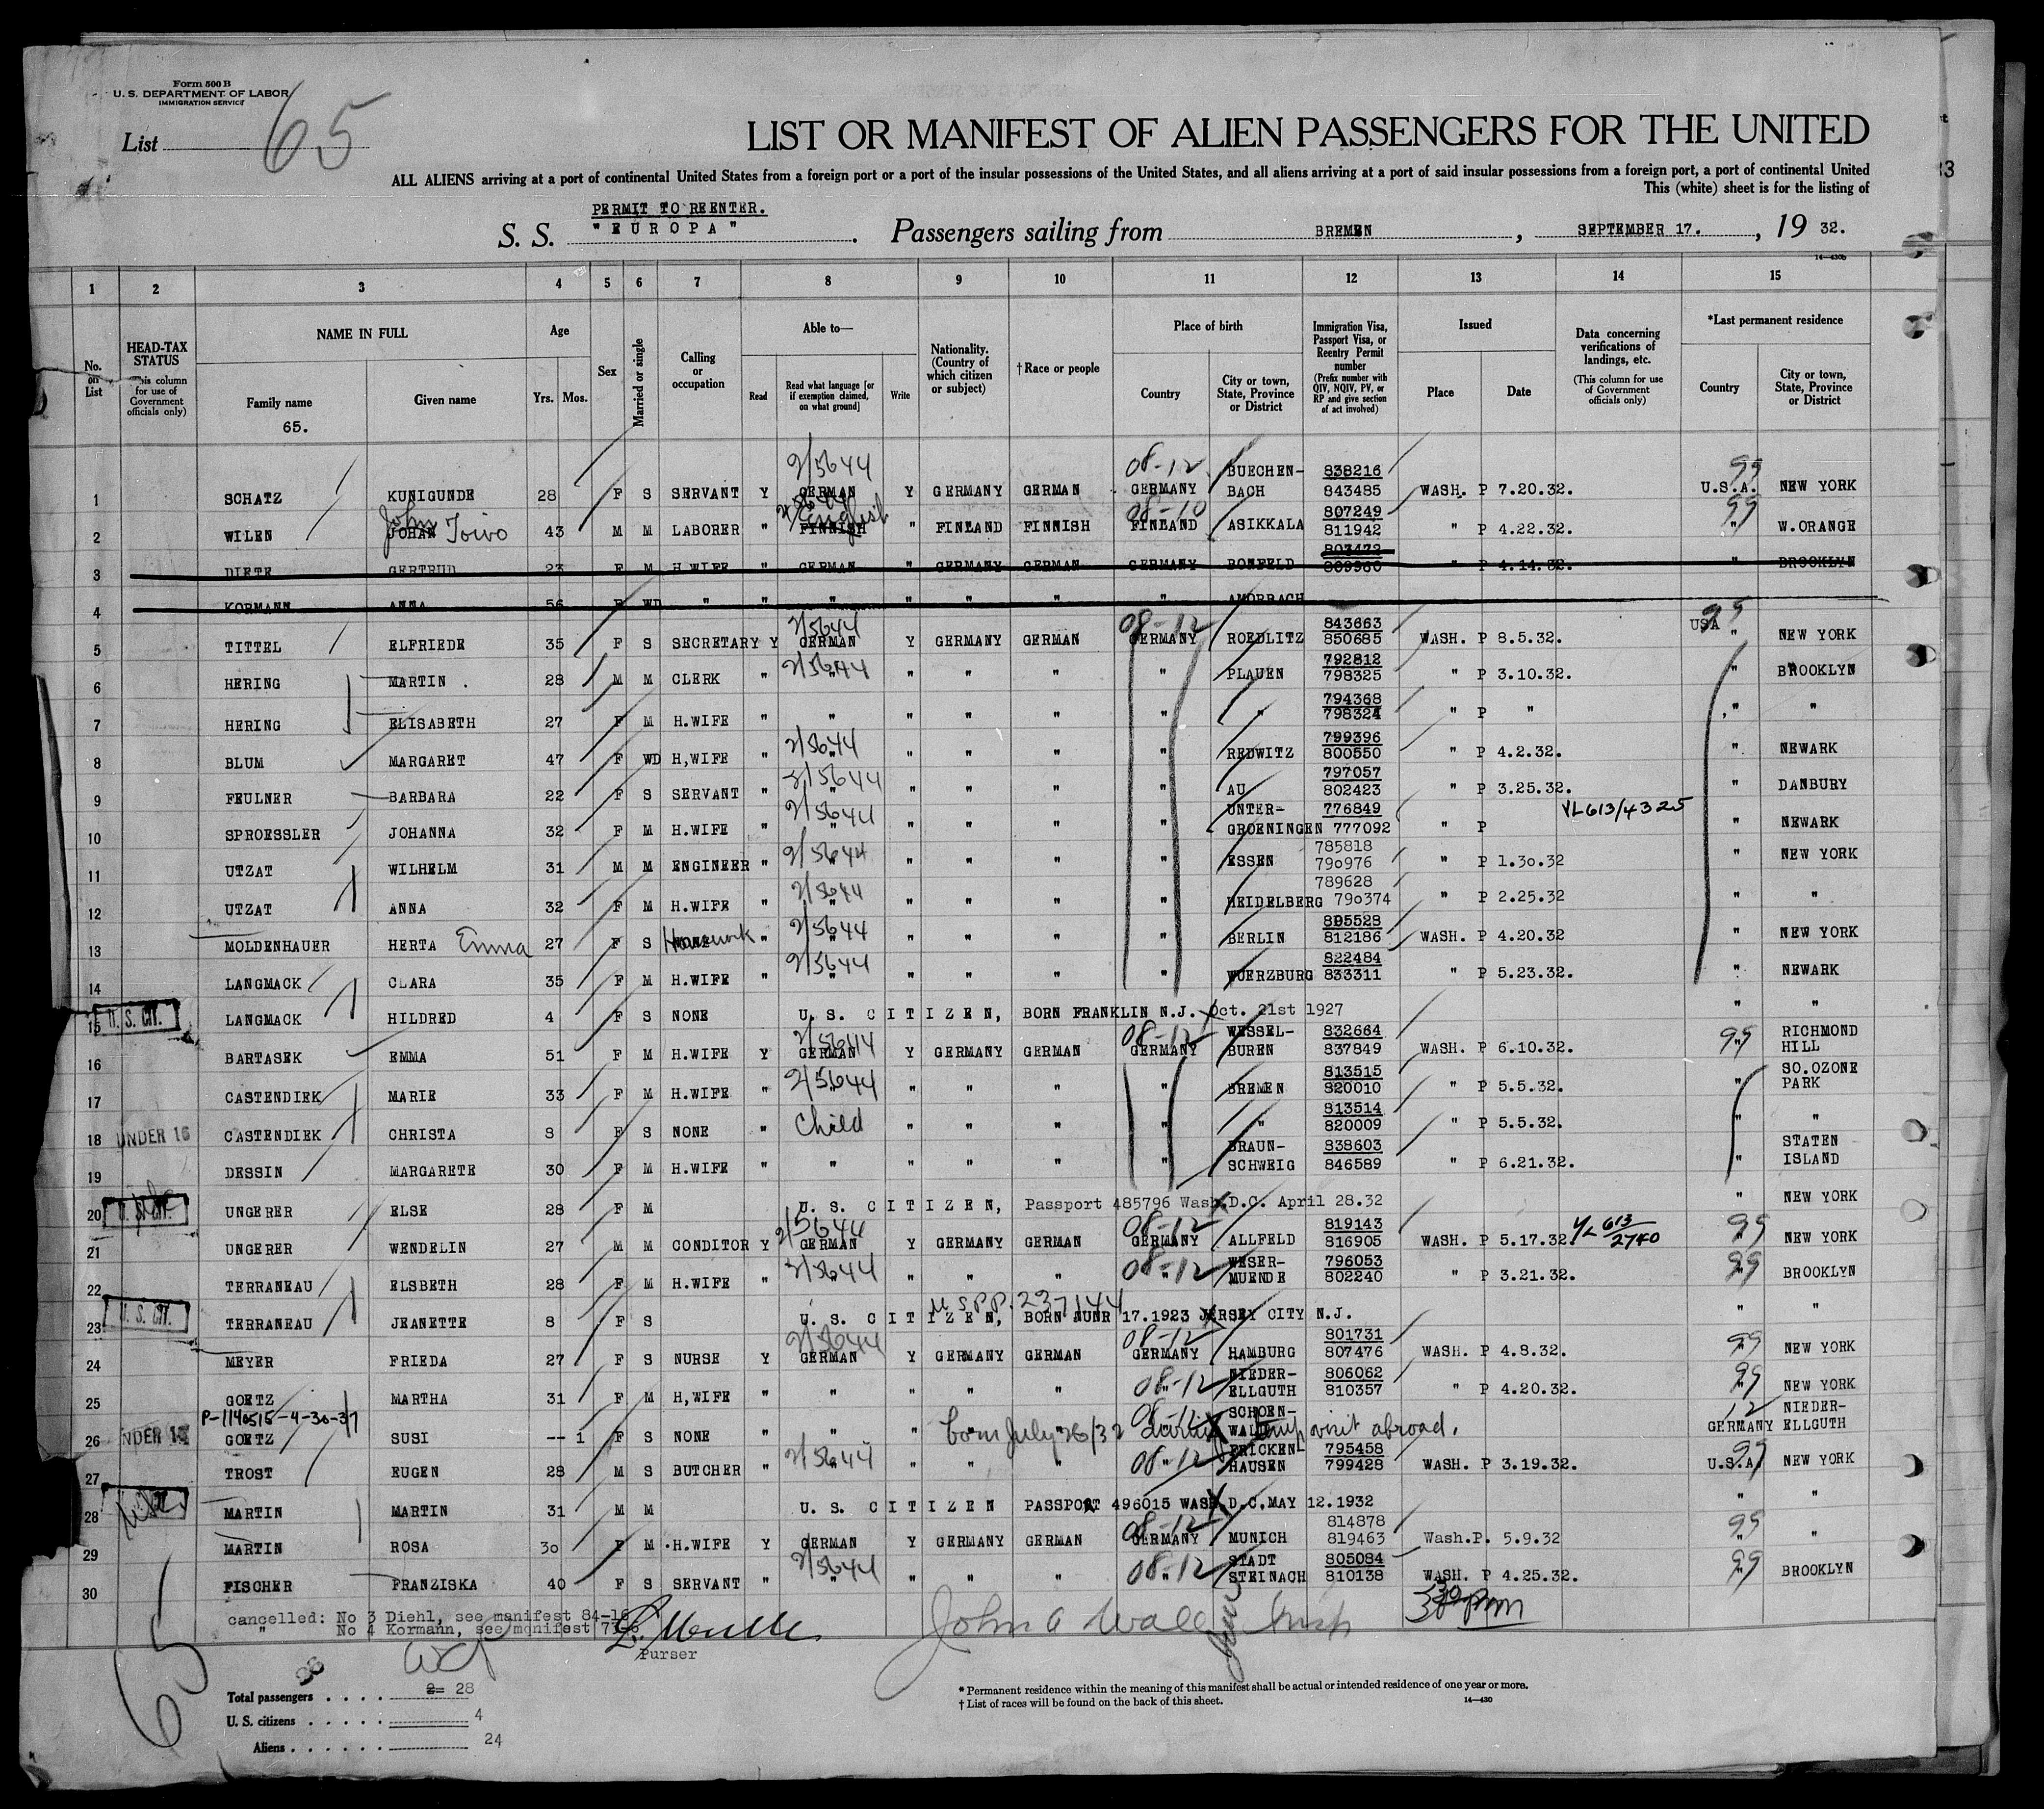 Form 500 B
U. S. DEPARTMENT OF LABOR
IMMIGRATION SERVICE
List 65
LIST OR MANIFEST OF ALIEN PASSENGERS FOR THE UNITED
ALL ALIENS arriving at a port of continental United States from a foreign port or a port of the insular possessions of the United States, and all aliens arriving at a port of said insular possessions from a foreign port, a port of continental United
This (white) sheet is for the listing of
PERMIT TO REENTER.
S. S. "EUROPA". Passengers sailing from BREMEN, SEPTEMBER 17., 19 32.
14—430b
1 2 3 4 5 6 7 8 9 10 11 12 13 14 15
No. on List
HEAD-TAX STATUS (This column for use of Government officials only)
NAME IN FULL Family name 65. Given name
Age Yrs. Mos.
Sex
Married or single
Calling or occupation
Able to— Read Read what language [or if exemption claimed, on what ground] Write
Nationality. (Country of which citizen or subject)
†Race or people
Place of birth Country City or town, State, Province or District
Immigration Visa, Passport Visa, or Reentry Permit number (Prefix number with QIV, NQIV, PV, or RP and give section of act involved)
Issued Place Date
Data concerning verifications of landings, etc. (This column for use of Government officials only)
*Last permanent residence Country City or town, State, Province or District
2/5644 08-12 99
1 SCHATZ KUNIGUNDE 28 F S SERVANT Y GERMAN Y GERMANY GERMAN GERMANY BUECHEN-BACH 838216 843485 WASH. P 7.20.32. U.S.A. NEW YORK
John English 08-10 99
2 WILEN JOHAN Toivo 43 M M LABORER " FINNISH " FINLAND FINNISH FINLAND ASIKKALA 807249 811942 " P 4.22.32. " W.ORANGE
3 DIETE GERTRUD 23 F M H.WIFE " GERMAN " GERMANY GERMAN GERMANY BONFELD 803472 809960 " P 4.14.32. " BROOKLYN
4 KORMANN ANNA 56 F WD " " " " " " " AMORBACH
2/5644 08-12 99
5 TITTEL ELFRIEDE 35 F S SECRETARY Y GERMAN Y GERMANY GERMAN GERMANY ROEDLITZ 843663 850685 WASH. P 8.5.32. USA " NEW YORK
2/5644
6 HERING MARTIN. 28 M M CLERK " " " " " " PLAUEN 792812 798325 " P 3.10.32. " BROOKLYN
7 HERING ELISABETH 27 F M H.WIFE " " " " " " " 794368 798324 " P " " "
2/5644
8 BLUM MARGARET 47 F WD H,WIFE " " " " " " REDWITZ 799396 800550 " P 4.2.32. " NEWARK
2/5644
9 FEULNER BARBARA 22 F S SERVANT " " " " " " AU 797057 802423 " P 3.25.32. " DANBURY
2/5644
10 SPROESSLER JOHANNA 32 F M H.WIFE " " " " " " UNTER-GROENINGEN 776849 777092 " P VL613/4325 " NEWARK
2/5644
11 UTZAT WILHELM 31 M M ENGINEER " " " " " " ESSEN 785818 790976 " P 1.30.32 " NEW YORK
2/5644
12 UTZAT ANNA 32 F M H.WIFE " " " " " " HEIDELBERG 789628 790374 " P 2.25.32 " "
2/5644
13 MOLDENHAUER HERTA Emma 27 F S Housewk " " " " " " BERLIN 805528 812186 WASH. P 4.20.32 " NEW YORK
2/5644
14 LANGMACK CLARA 35 F M H.WIFE " " " " " " WUERZBURG 822484 833311 " P 5.23.32. " NEWARK
15 U. S. CIT. LANGMACK HILDRED 4 F S NONE U. S. CITIZEN, BORN FRANKLIN N.J. Oct. 21st 1927 " "
2/5644 08-12 99
16 BARTASEK EMMA 51 F M H.WIFE Y GERMAN Y GERMANY GERMAN GERMANY WESSEL-BUREN 832664 837849 WASH. P 6.10.32. " RICHMOND HILL
2/5644
17 CASTENDIEK MARIE 33 F M H.WIFE " " " " " " BREMEN 813515 820010 " P 5.5.32. " SO.OZONE PARK
18 UNDER 16 CASTENDIEK CHRISTA 8 F S NONE " Child " " " " " 813514 820009 " P 5.5.32. " "
19 DESSIN MARGARETE 30 F M H.WIFE " " " " " " BRAUN-SCHWEIG 838603 846589 " P 6.21.32. " STATEN ISLAND
20 U. S. CIT. UNGERER ELSE 28 F M U. S. CITIZEN, Passport 485796 Wash.D.C. April 28.32 " NEW YORK
2/5644 08-12 99
21 UNGERER WENDELIN 27 M M CONDITOR Y GERMAN Y GERMANY GERMAN GERMANY ALLFELD 819143 816905 WASH. P 5.17.32. VL 613/2740 " NEW YORK
2/5644 08-12 99
22 TERRANEAU ELSBETH 28 F M H.WIFE " " " " " " WESER-MUENDE 796053 802240 " P 3.21.32. " BROOKLYN
U S P P. 237144
23 U. S. CIT. TERRANEAU JEANETTE 8 F S U. S. CITIZEN, BORN NUNR 17.1923 JERSEY CITY N.J. " "
2/5644 08-12 99
24 MEYER FRIEDA 27 F S NURSE Y GERMAN Y GERMANY GERMAN GERMANY HAMBURG 801731 807476 WASH. P 4.8.32. " NEW YORK
08-12 99
25 GOETZ MARTHA 31 F M H,WIFE " " " " " " NIEDER-ELLGUTH 806062 810357 " P 4.20.32. " NEW YORK
P-1140515-4-30-37
26 UNDER 16 GOETZ SUSI -- 1 F S NONE " " " born July 26/32 during temp visit abroad. SCHOEN-WALD 12 GERMANY NIEDER-ELLGUTH
2/5644 08-12 99
27 TROST EUGEN 28 M S BUTCHER " " " " " " FRICKEN-HAUSEN 795458 799428 WASH. P 3.19.32. U.S.A. NEW YORK
28 MARTIN MARTIN 31 M M U. S. CITIZEN PASSPORT 496015 WASH.D.C.MAY 12.1932 " "
08-12 99
29 MARTIN ROSA 30 F M H.WIFE Y GERMAN Y GERMANY GERMAN GERMANY MUNICH 814878 819463 Wash.P. 5.9.32 " "
2/5644 08-12 99
30 FISCHER FRANZISKA 40 F S SERVANT " " " " " " STADT STEINACH 805084 810138 WASH. P 4.25.32. " BROOKLYN
cancelled: No 3 Diehl, see manifest 84-18
" No 4 Kormann, see manifest
Purser
John A Wall Insp
65
26
Total passengers . . . . 28
U. S. citizens . . . . . 4
Aliens . . . . . . 24
* Permanent residence within the meaning of this manifest shall be actual or intended residence of one year or more.
† List of races will be found on the back of this sheet. 14—430